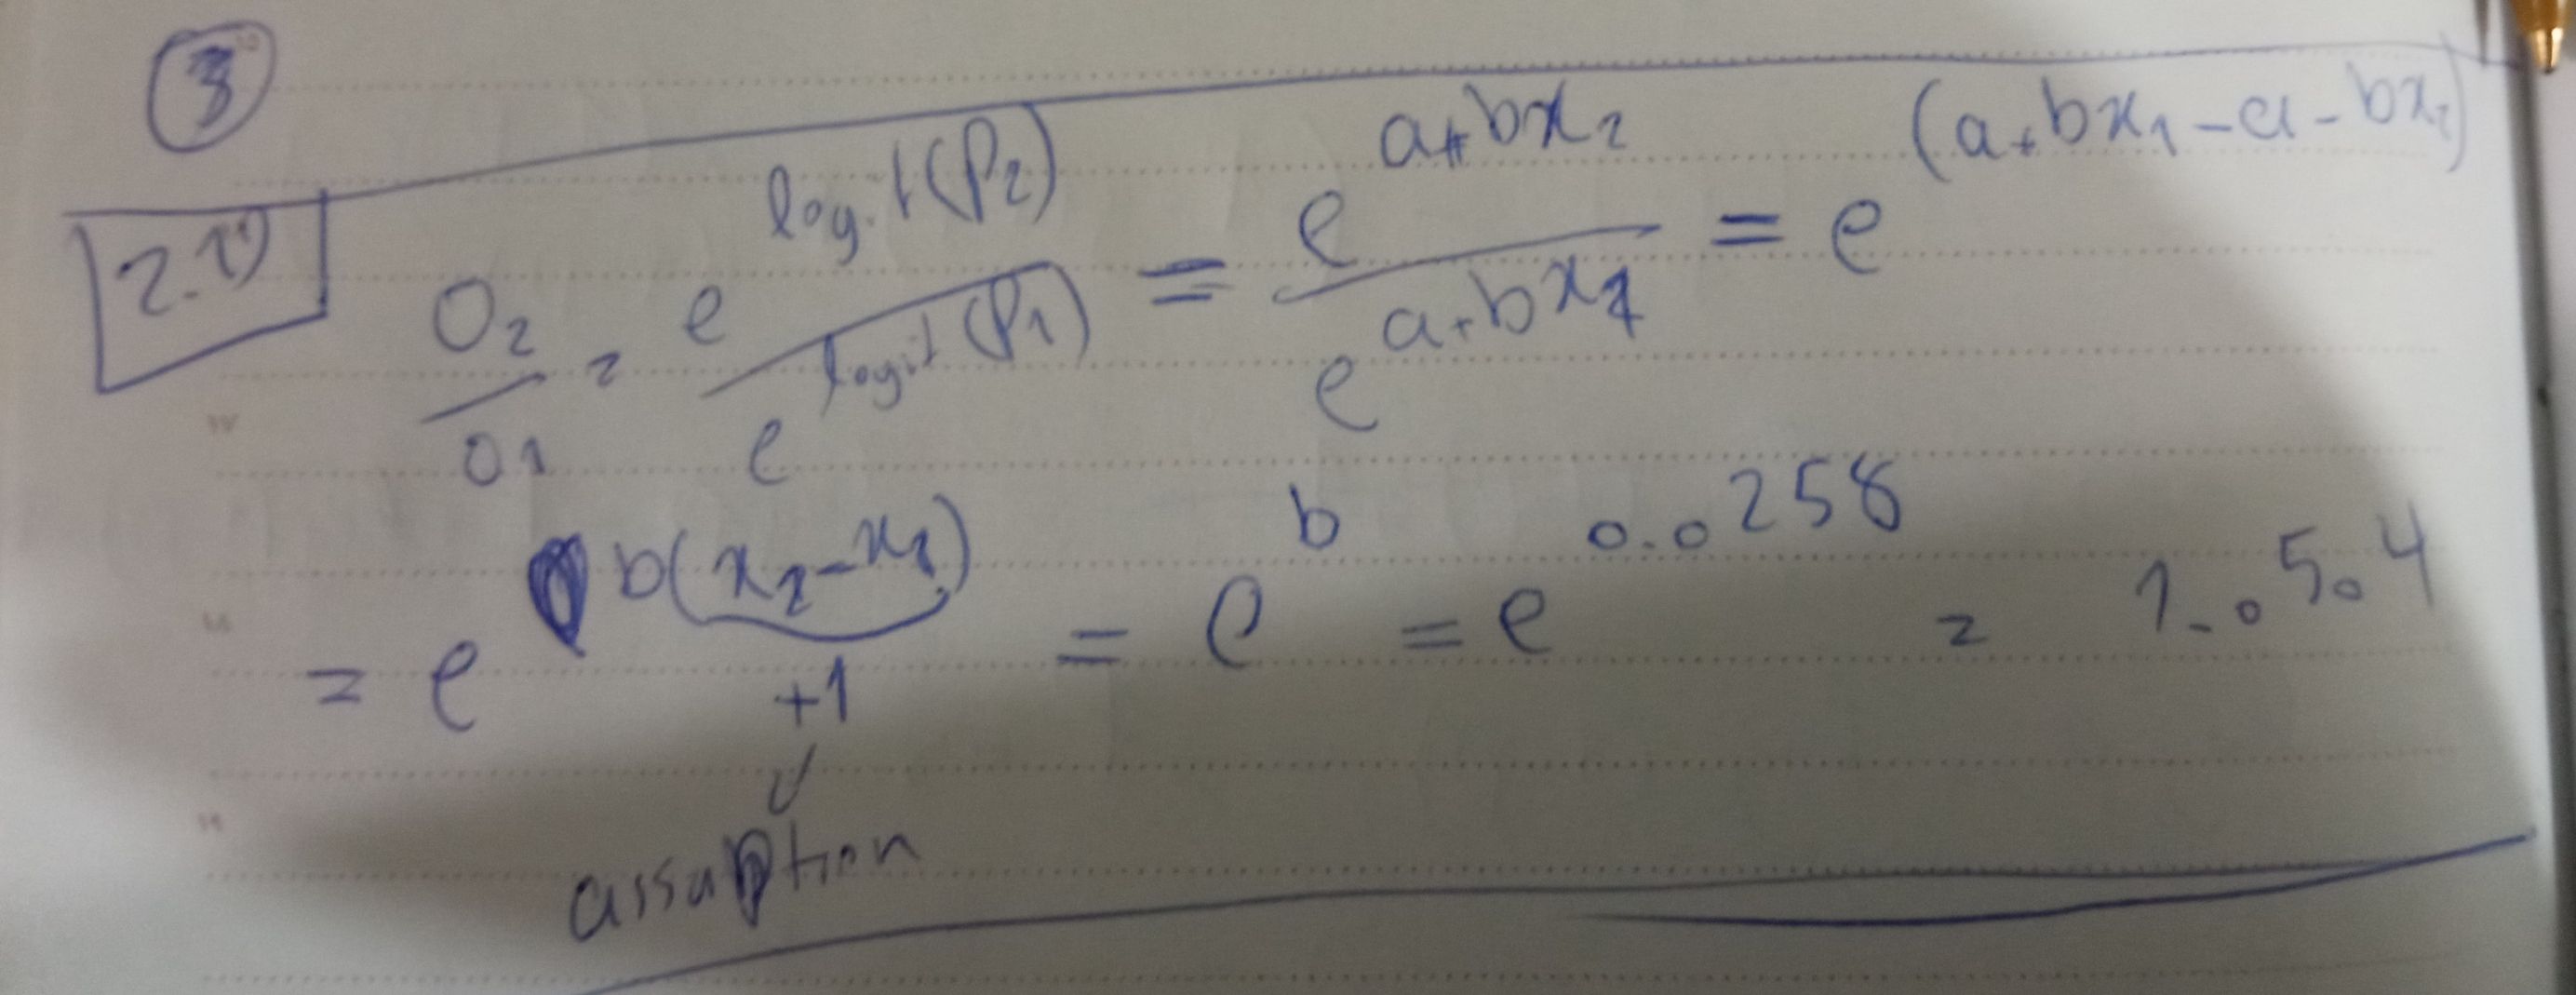 3
2.1)
O₂/O₁ = e^logit(P₂) / e^logit(P₁) = e^(a+bx₂) / e^(a+bx₁) = e^(a+bx₁-a-bx₂)
= e^b(x₂-x₁) = e^b = e^0.0258 = 1.0504
+1
assuption